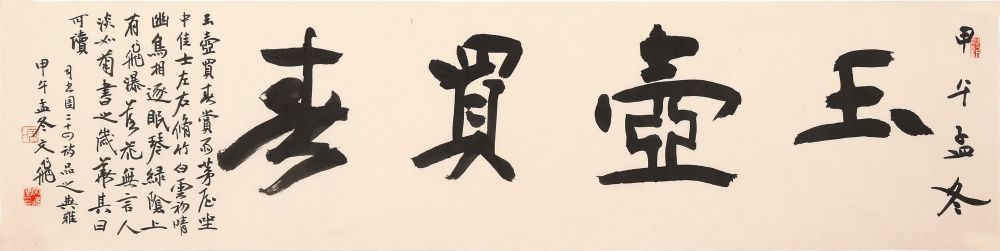 甲午孟冬
玉壺買春
玉壺買春賞雨茅屋坐
中佳士左右脩竹白雲初晴
幽鳥相逐眠琴綠陰上
有飛瀑落花無言人
淡如菊書之歲華其曰
可讀
司空圖二十四詩品之典雅
甲午孟冬文飛